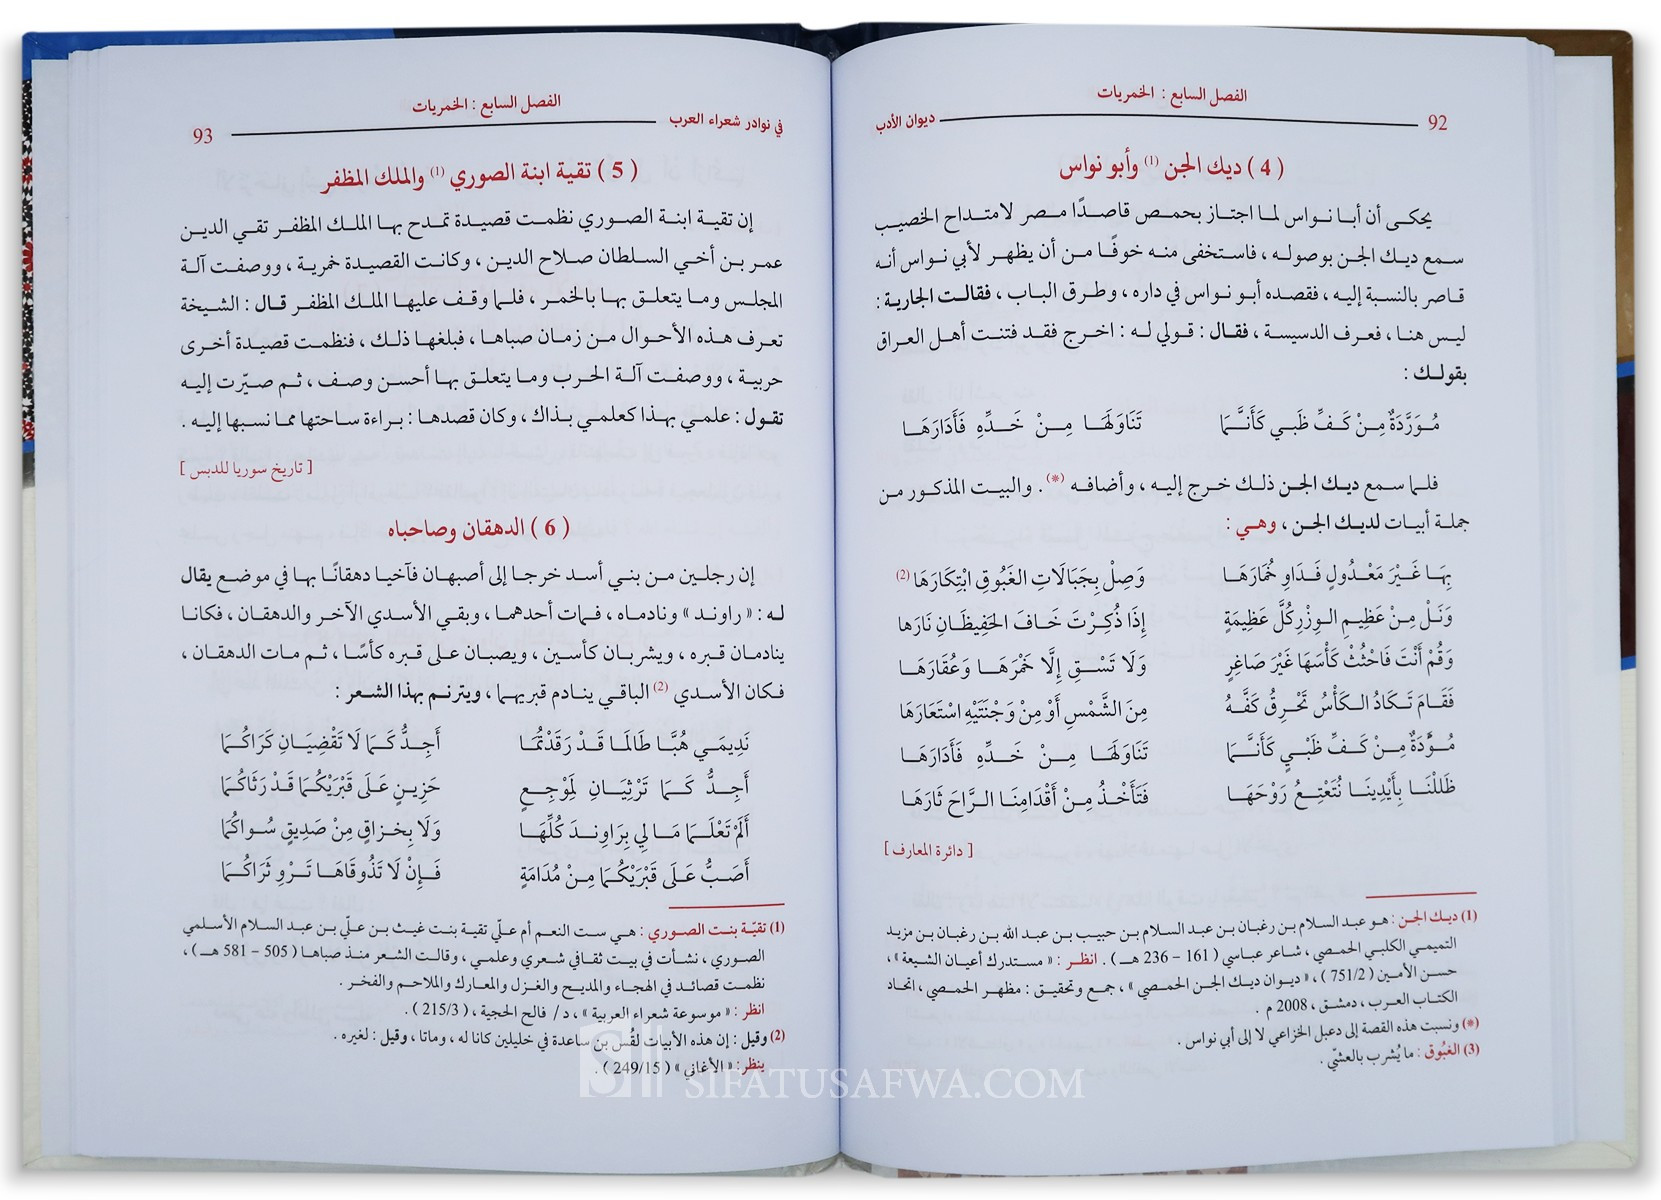 الفصل السابع : الخمريات
92
ديوان الأدب
( 4 ) ديك الجن (1) وأبو نواس
يحكى أن أبا نواس لما اجتاز بحمص قاصدًا مصر لامتداح الخصيب
سمع ديك الجن بوصوله ، فاستخفى منه خوفًا من أن يظهر لأبي نواس أنه
قاصر بالنسبة إليه ، فقصده أبو نواس في داره ، وطرق الباب ، فقالت الجارية :
ليس هنا ، فعرف الدسيسة ، فقال : قولي له : اخرج فقد فتنت أهل العراق
بقولك :
مُوَرَّدَةٌ مِنْ كَفِّ ظَبي كَأَنَّمَا تَنَاوَلَهَا مِنْ خَدِّهِ فَأَدَارَهَا
فلما سمع ديك الجن ذلك خرج إليه ، وأضافه (*) . والبيت المذكور من
جملة أبيات لديك الجن ، وهي :
بِهَا غَيْرَ مَعْدُولٍ فَدَاوِ خُمَارَهَا وَصِلْ بِحِبَالَاتِ الغَبُوقِ ابْتِكَارَهَا (2)
وَنَلْ مِنْ عَظِيمِ الوِزْرِ كُلَّ عَظِيمَةٍ إِذَا ذُكِرْتَ خَافَ الحَفِيظَانِ نَارَها
وَقُمْ أَنْتَ فَاحْثُثْ كَأْسَهَا غَيْرَ صَاغِرٍ وَلَا تَسْقِ إِلَّا خَمْرَهَا وَعُقَارَهَا
فَقَامَ تَكَادُ الكَأْسُ تَحْرِقُ كَفَّهُ مِنَ الشَّمْسِ أَوْ مِنْ وَجْنَتَيْهِ اسْتَعَارَهَا
مُوَّدَةٌ مِنْ كَفِّ ظَبْيٍ كَأَنَّمَا تَنَاوَلَهَا مِنْ خَدِّهِ فَأَدَارَهَا
ظَلَلْنَا بِأَيْدِينَا نُتَعْتِعُ رَوْحَهَا فَتَأْخُذُ مِنْ أَقْدَامِنَا الرَّاحَ ثَارَهَا
[ دائرة المعارف ]
(1) ديك الجن : هو عبد السلام بن رغبان بن عبد السلام بن حبيب بن عبد الله بن رغبان بن مزيد
التميمي الكلبي الحمصي ، شاعر عباسي ( 161 – 236 هـ ) . انظر : « مستدرك أعيان الشيعة » ،
حسن الأمين ( 751/2 ) ، « ديوان ديك الجن الحمصي » ، جمع وتحقيق : مظهر الحمصي ، اتحاد
الكتاب العرب ، دمشق ، 2008 م .
(*) ونسبت هذه القصة إلى دعبل الخزاعي لا إلى أبي نواس .
(3) الغَبُوق : ما يُشرب بالعشيّ .
الفصل السابع : الخمريات
في نوادر شعراء العرب
93
( 5 ) تقية ابنة الصوري (1) والملك المظفر
إن تقية ابنة الصوري نظمت قصيدة تمدح بها الملك المظفر تقي الدين
عمر بن أخي السلطان صلاح الدين ، وكانت القصيدة خمرية ، ووصفت آلة
المجلس وما يتعلق بها بالخمر ، فلما وقف عليها الملك المظفر قال : الشيخة
تعرف هذه الأحوال من زمان صباها ، فبلغها ذلك ، فنظمت قصيدة أخرى
حربية ، ووصفت آلة الحرب وما يتعلق بها أحسن وصف ، ثم صيّرت إليه
تقول : علمي بهذا كعلمي بذاك ، وكان قصدها : براءة ساحتها مما نسبها إليه .
[ تاريخ سوريا للدبس ]
( 6 ) الدهقان وصاحباه
إن رجلين من بني أسد خرجا إلى أصبهان فآخيا دهقانًا بها في موضع يقال
له : « راوند » ونادماه ، فمات أحدهما ، وبقي الأسدي الآخر والدهقان ، فكانا
ينادمان قبره ، ويشربان كأسين ، ويصبان على قبره كأسًا ، ثم مات الدهقان ،
فكان الأسدي (2) الباقي ينادم قبريهما ، ويترنم بهذا الشعر :
نَدِيمَي هُبَّا طَالَمَا قَدْ رَقَدْتُمَا أَجِدُّ كَمَا لَا تَقْضِيَانِ كَرَاكُمَا
أَجِدُّ كَمَا تَرْثِيَانِ لِمَوْجِعٍ حَزِينٍ عَلَى قَبْرَيْكُمَا قَدْ رَثَاكُمَا
أَلَمْ تَعْلَمَا مَا لِي بِرَاوِندَ كُلِّهَا وَلَا بِخزاقٍ مِنْ صَدِيقٍ سُواكُمَا
أَصَبُّ عَلَى قَبْرَيْكُمَا مِنْ مُدَامَةٍ فَإِنْ لَا تَذُوقَاهَا تَرْوِ ثَرَاكُمَا
(1) تقيّة بنت الصوري : هي ست النعم أم عليّ تقية بنت غيث بن علي بن عبد السلام الأسلمي
الصوري ، نشأت في بيت ثقافي شعري وعلمي ، وقالت الشعر منذ صباها ( 505 – 581 هـ ) ،
نظمت قصائد في الهجاء والمديح والغزل والمعارك والملاحم والفخر .
انظر : « موسوعة شعراء العربية » ، د/ فالح الحجية ، ( 215/3 ) .
(2) وقيل : إن هذه الأبيات لقُس بن ساعدة في خليلين كانا له ، وماتا ، وقيل : لغيره .
ينظر : « الأغاني » ( 249/15 ) .
SIFATUSAFWA.COM